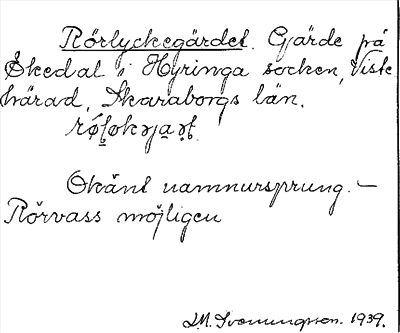 Rörlyckegärdet. Gärde på
Ökedal i Hyringa socken, Viste
härad, Skaraborgs län.
Okänt namnursprung. –
Rörvass möjligen
J.M. Svenningsson. 1939.